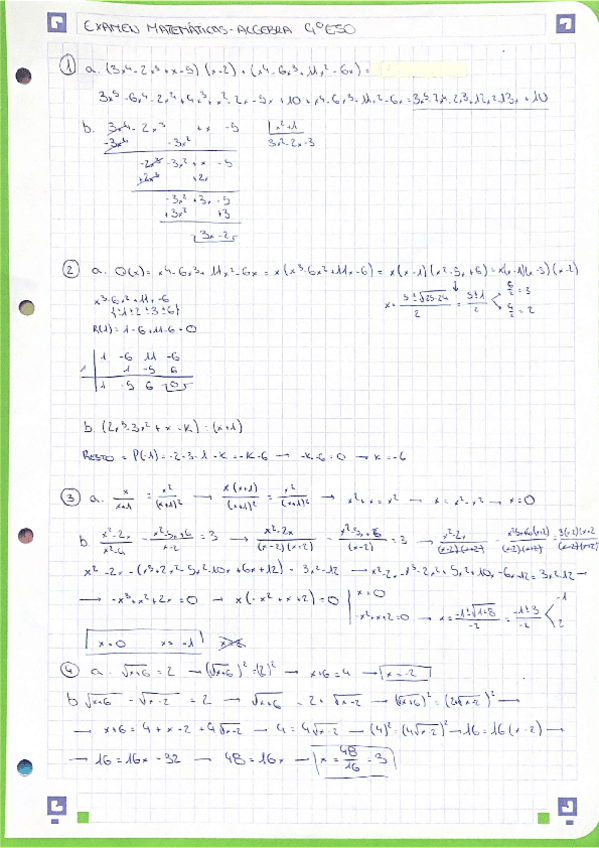 EXAMEN MATEMÁTICAS - ALGEBRA 4º ESO
① a. (3x⁴ - 2x³ + x - 5) (x - 2) + (x⁴ - 6x³ + 11x² - 6x) =
3x⁵ - 6x⁴ - 2x⁴ + 4x³ + x² - 2x - 5x + 10 + x⁴ - 6x³ + 11x² - 6x = 3x⁵ - 7x⁴ - 2x³ + 12x² - 13x + 10
b. 3x⁴ - 2x³ + x - 5 | x² + 1
-3x⁴ - 3x² 3x² - 2x - 3
-2x³ - 3x² + x - 5
+2x³ + 2x
-3x² + 3x - 5
+3x² + 3
3x - 2
② a. Q(x) = x⁴ - 6x³ + 11x² - 6x = x(x³ - 6x² + 11x - 6) = x(x - 1)(x² - 5x + 6) = x(x - 1)(x - 3)(x - 2)
x³ - 6x² + 11x - 6
{±1 ± 2 ± 3 ± 6}
x = (5 ± √25 - 24)/2 = (5 ± 1)/2 < 6/2 = 3
4/2 = 2
R(1) = 1 - 6 + 11 - 6 = 0
1 -6 11 -6
1 | 1 -5 6
1 -5 6 0
b. (2x³ - 3x² + x - K) : (x + 1)
RESTO = P(-1) = -2 - 3 - 1 - K = -K - 6 → -K - 6 = 0 → K = -6
③ a. x/(x+1) = x²/(x+1)² → x(x+1)/(x+1)² = x²/(x+1)² → x² + x = x² → x = x² - x² → x = 0
b. (x² - 2x)/(x² - 4) - (x² - 5x + 6)/(x - 2) = 3 → (x² - 2x)/((x - 2)(x + 2)) - (x² - 5x + 6)/(x - 2) = 3 → (x² - 2x)/((x - 2)(x + 2)) - (x² - 5x + 6)(x + 2)/((x - 2)(x + 2)) = 3(x - 2)(x + 2)/((x - 2)(x + 2))
x² - 2x - (x³ + 2x² - 5x² - 10x + 6x + 12) = 3x² - 12 → x² - 2x - x³ - 2x² + 5x² + 10x - 6x - 12 = 3x² - 12 →
→ -x³ + x² + 2x = 0 → x(-x² + x + 2) = 0 | x = 0
-x² + x + 2 = 0 → x = (-1 ± √1 + 8)/-2 = (-1 ± 3)/-2 < -1
2
x = 0 x = -1
④ a. √x+6 = 2 → (√x+6)² = (2)² → x + 6 = 4 → x = -2
b √x+6 - √x-2 = 2 → √x+6 = 2 + √x-2 → (√x+6)² = (2+√x-2)² →
→ x + 6 = 4 + x - 2 + 4√x-2 → 4 = 4√x-2 → (4)² = (4√x-2)² → 16 = 16(x - 2) →
→ 16 = 16x - 32 → 48 = 16x → x = 48/16 = 3